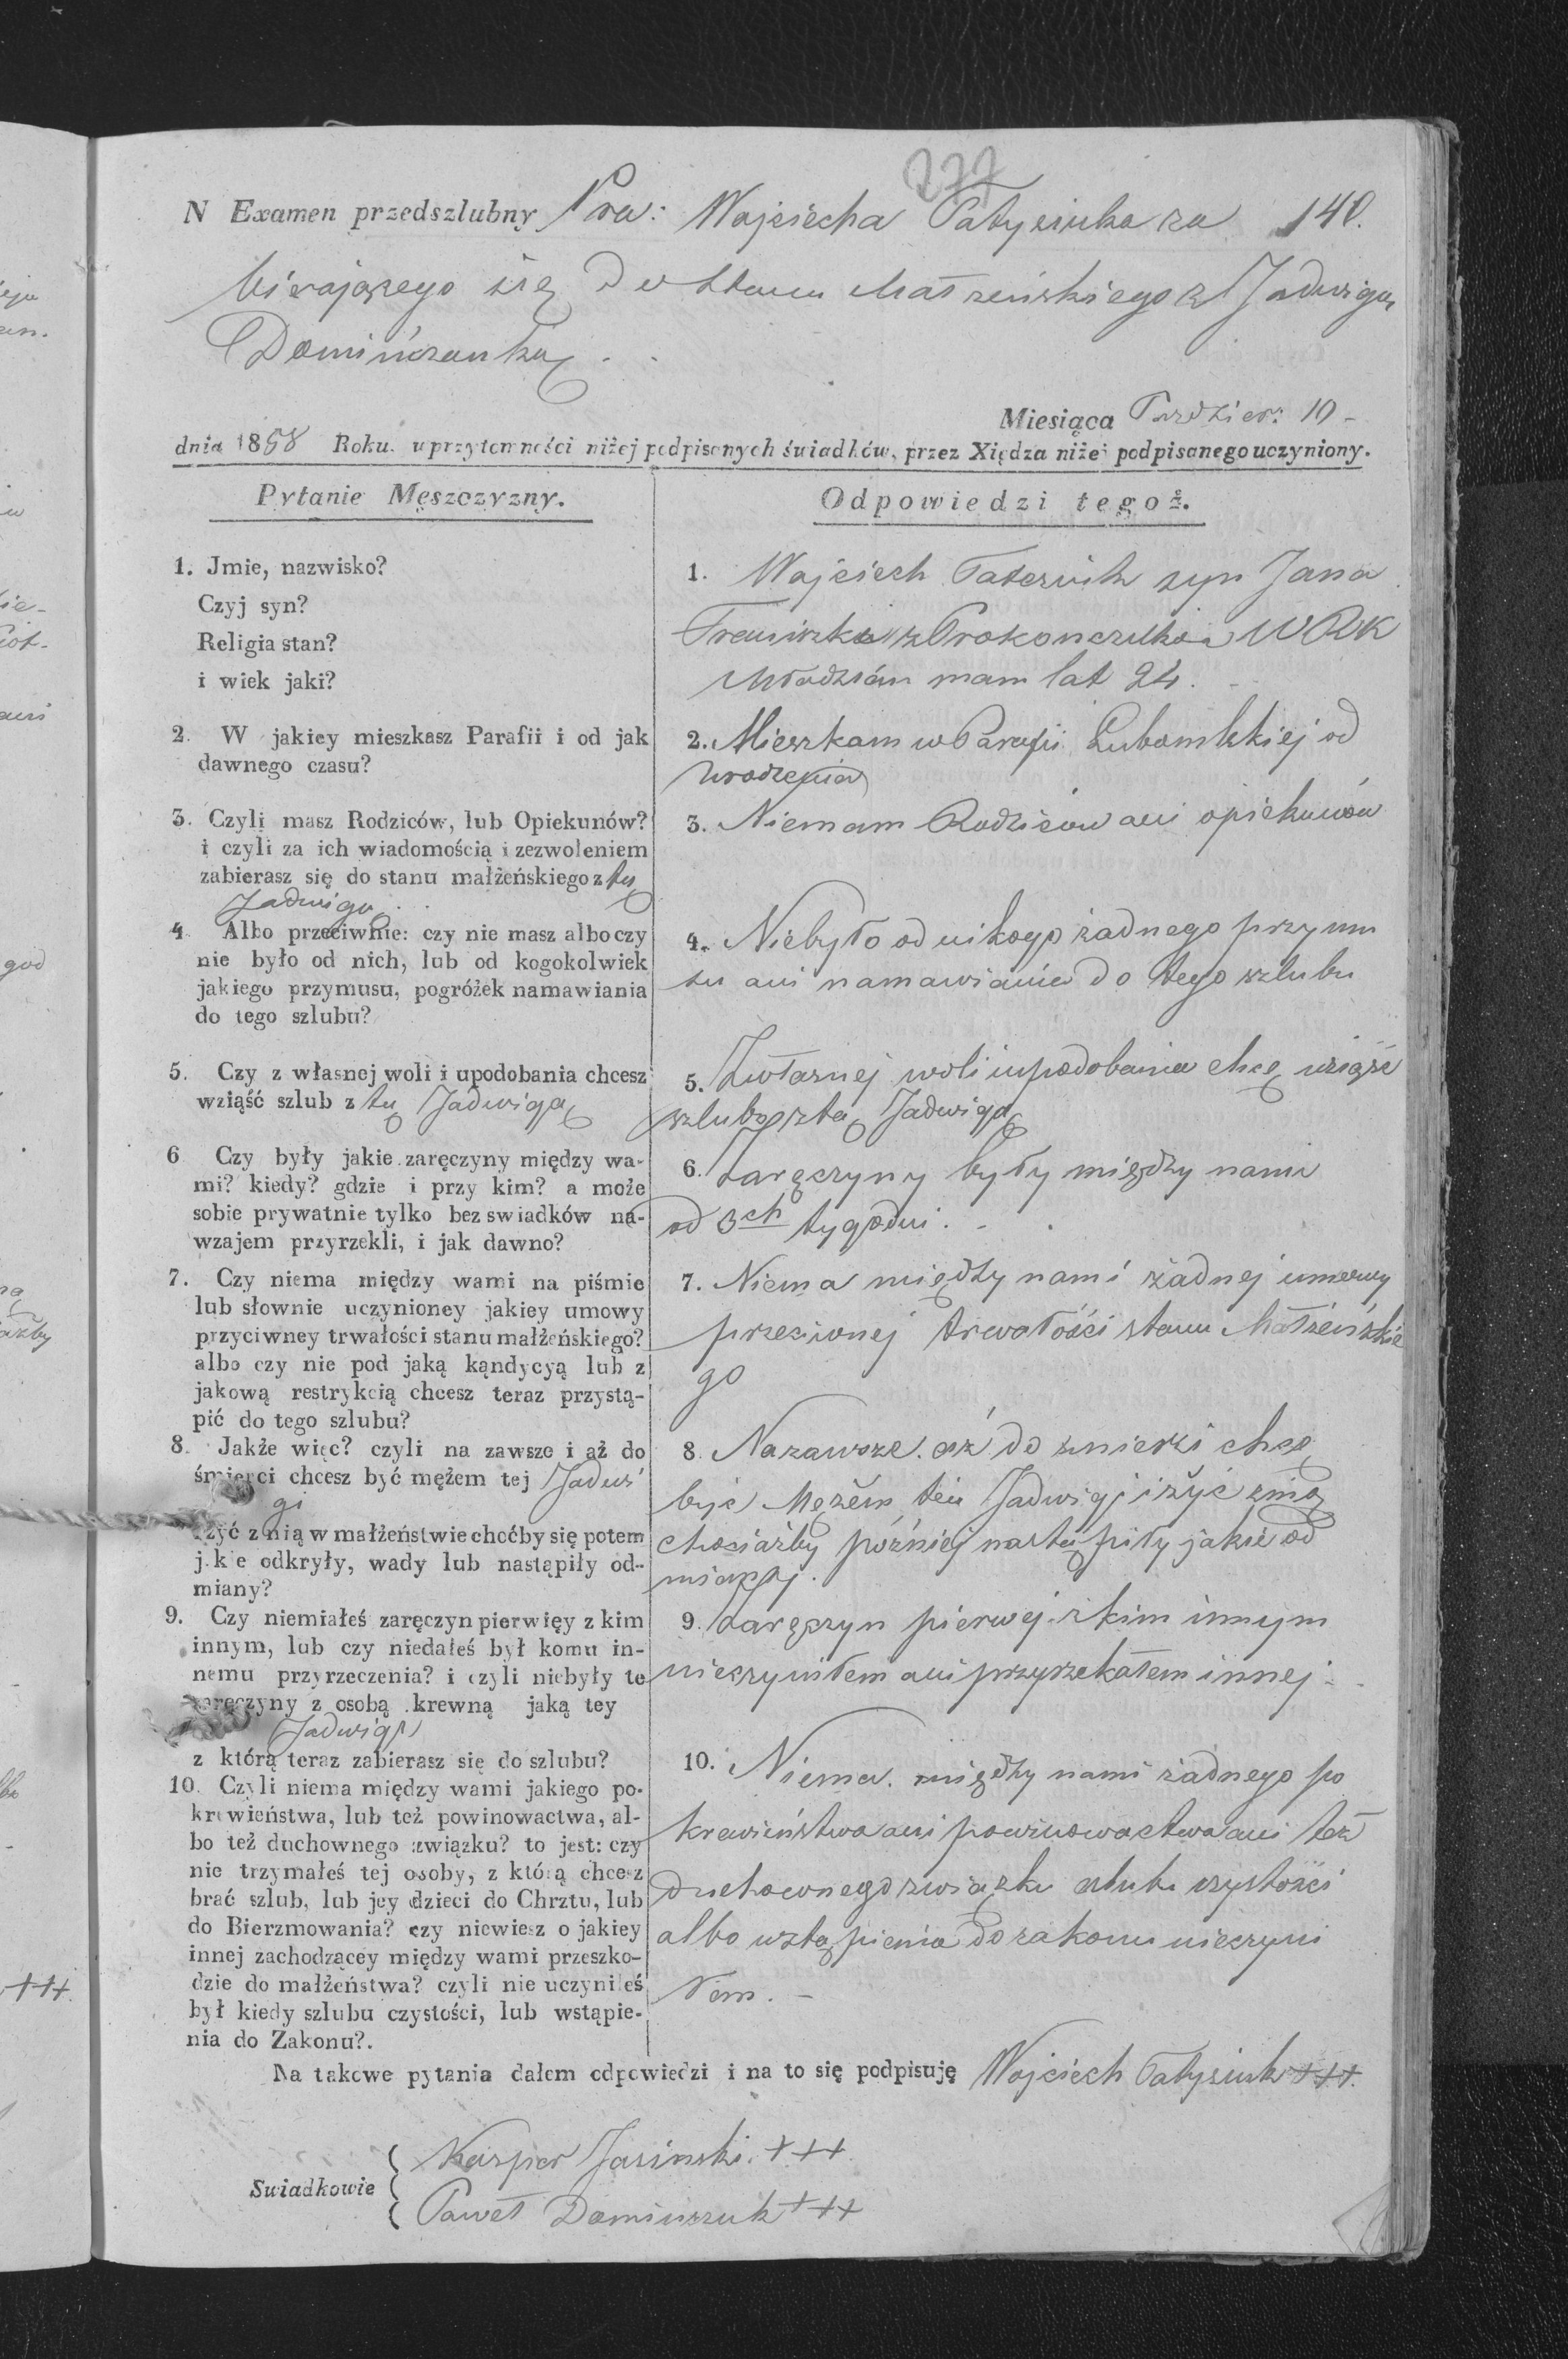 277
N Examen przedszlubny Pra: Wojciecha Tatysiuka za 140.
bierającego się Do Stanu Małżeńskiego z Jadwigą
Domińczanką
Miesiąca Paździer: 10 -
dnia 1858 Roku. w przytomności niżej podpisanych świadków, przez Xiędza niżej podpisanego uczyniony.
Pytanie Męszczyzny.
1. Jmie, nazwisko?
Czyj syn?
Religia stan?
i wiek jaki?
2. W jakiey mieszkasz Parafii i od jak
dawnego czasu?
3. Czyli masz Rodziców, lub Opiekunów?
i czyli za ich wiadomością i zezwoleniem
zabierasz się do stanu małżeńskiego z tą
Jadwigą
4 Albo przeciwnie: czy nie masz albo czy
nie było od nich, lub od kogokolwiek
jakiego przymusu, pogróżek namawiania
do tego szlubu?
5. Czy z własnej woli i upodobania chcesz
wziąść szlub z tą Jadwigą
6 Czy były jakie zaręczyny między wa-
mi? kiedy? gdzie i przy kim? a może
sobie prywatnie tylko bez swiadków na-
wzajem przyrzekli, i jak dawno?
7. Czy niema między wami na piśmie
lub słownie uczynioney jakiey umowy
przyciwney trwałości stanu małżeńskiego?
albo czy nie pod jaką kąndycyą lub z
jakową restrykcią chcesz teraz przystą-
pić do tego szlubu?
8. Jakże więc? czyli na zawsze i aż do
śmierci chcesz być mężem tej Jadwi
gi
żyć z nią w małżeństwie choćby się potem
jakie odkryły, wady lub nastąpiły od-
miany?
9. Czy niemiałeś zaręczyn pierwięy z kim
innym, lub czy niedałeś był komu in-
nemu przyrzeczenia? i czyli niebyły te
zaręczyny z osobą krewną jaką tey
Jadwigi
z którą teraz zabierasz się do szlubu?
10. Czyli niema między wami jakiego po-
krewieństwa, lub też powinowactwa, al-
bo też duchownego związku? to jest: czy
nie trzymałeś tej osoby, z którą chcesz
brać szlub, lub jey dzieci do Chrztu, lub
do Bierzmowania? czy niewiesz o jakiey
innej zachodzącey między wami przeszko-
dzie do małżeństwa? czyli nie uczyniłeś
był kiedy szlubu czystości, lub wstąpie-
nia do Zakonu?.
Odpowiedzi tegoż.
1. Wojciech Tatysiuk syn Jana
Franciszki z Prokonczuków W RK
Młodzian mam lat 24.
2. Mieszkam w Parafii Lubomlskiej od
urodzenia
3. Niemam Rodziców ani opiekunów
4. Niebyło od nikogo żadnego przymu
su ani namawiania do tego szlubu
5. Zwłasnej woli i upodobania chcę wziąść
szlub z tą Jadwigą
6. Zaręczyny były między nami
od 3ch tygodni. -
7. Niema między nami żadnej umowy
przeciwnej trwałości stanu Małżeńskie
go
8. Nazawsze aż do śmierci chcę
być Mężem tej Jadwigi i żyć z nią
chociażby później nastąpiły jakie od
miany.
9. Zaręczyn pierwej z kim innym
nieczyniłem ani przyrzekałem innej -
10. Niema między nami żadnego po
krewieństwa ani powinowactwa ani też
duchownego związku szlubu czystości
albo wstąpienia do zakonu nieczyni
łem. -
Na takowe pytania dałem odpowiedzi i na to się podpisuję Wojciech Tatysiuk +++.
Swiadkowie
Kasper Jasinski. +++.
Paweł Dominczuk +++